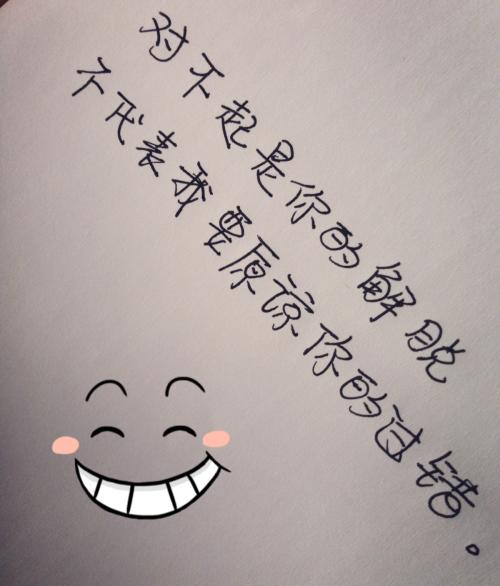 对不起是你的解脱
不代表我要原谅你的过错。